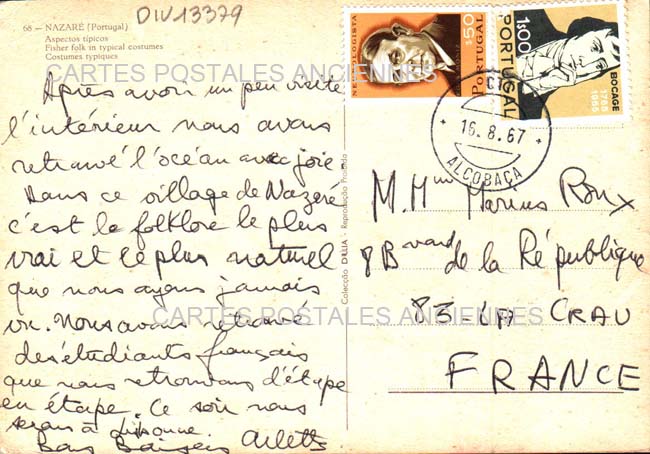 DIV13379
68 — NAZARÉ (Portugal)
Aspectos típicos
Fisher folk in typical costumes
Costumes typiques
CARTES POSTALES ANCIENNES
Après avoir un peu visité
l'intérieur nous avons
retrouvé l'océan avec joie
Dans ce village de Nazeré
c'est le folklore le plus
vrai et le plus naturel
que nous ayons jamais
vu. Nous avons retrouvé
des étudiants français
que nous retrouvons d'étape
en étape. Ce soir nous
serons à Lisbonne.
Bons Baisers Arlette
Colecção DÚLIA - Reprodução Proibida
$50
PORTUGAL
1$00
PORTUGAL
BOCAGE
1765
1965
16.8.67
ALCOBAÇA
M. Mme Marius Roux
8 Bvard de la République
83 - LA CRAU
FRANCE
CARTES POSTALES ANCIENNES